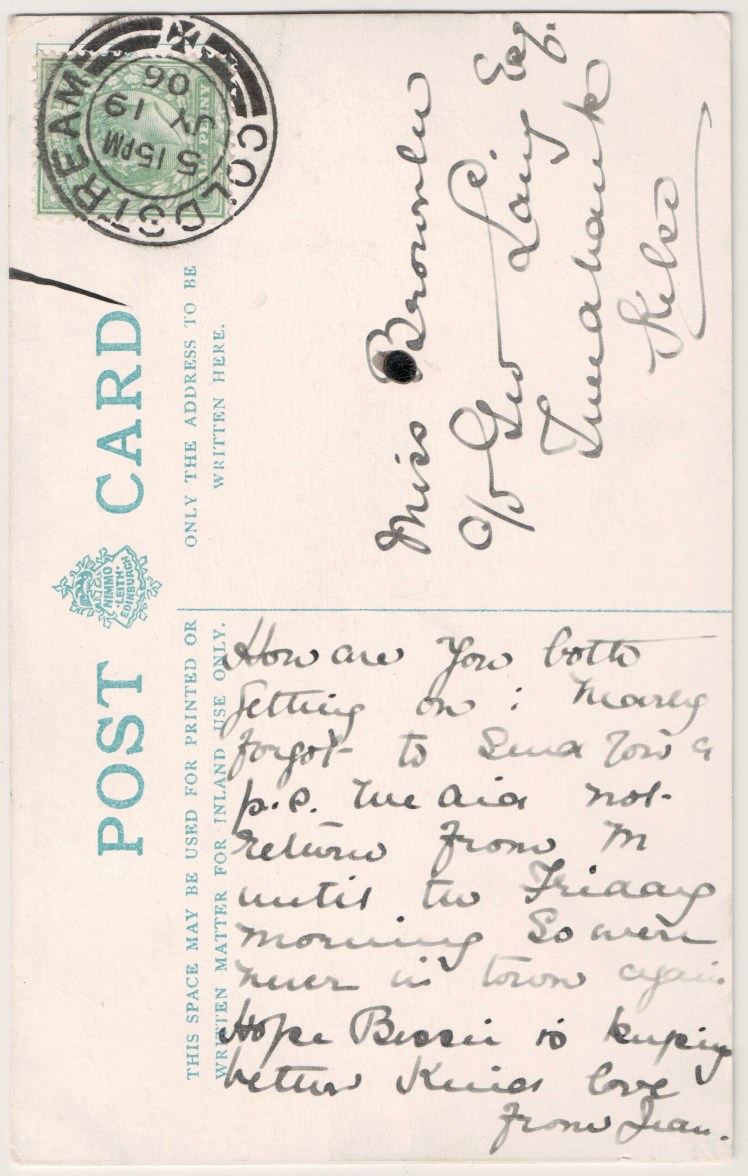 POST CARD
NIMMO
LEITH
EDINBURGH
THIS SPACE MAY BE USED FOR PRINTED OR
WRITTEN MATTER FOR INLAND USE ONLY.
ONLY THE ADDRESS TO BE
WRITTEN HERE.
COLDSTREAM
5 15 PM
JY 19
06
HALF PENNY
Miss Brownlee
c/o Geo Laing Esq.
Kelso
How are you both
getting on : nearly
forgot to send you a
p.c. We did not
return from M
until the Friday
morning so were
never in town again
Hope Bessie is keeping
better Kind love
from Jean.